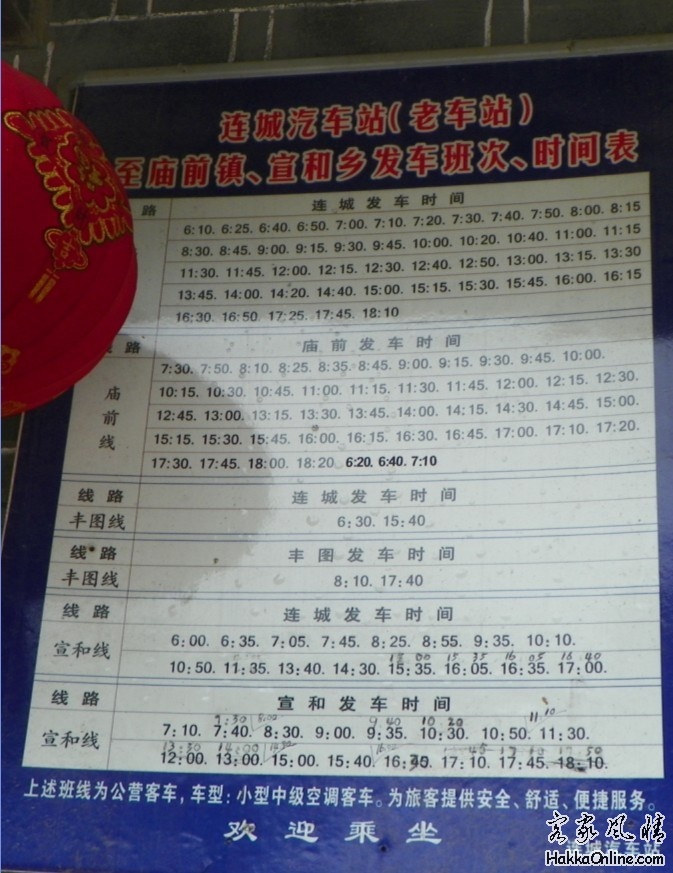 连城汽车站(老车站)
至庙前镇、宣和乡发车班次、时间表
路 连城发车时间
6:10. 6:25. 6:40. 6:50. 7:00. 7:10. 7:20. 7:30. 7:40. 7:50. 8:00. 8:15
8:30. 8:45. 9:00. 9:15. 9:30. 9:45. 10:00. 10:20. 10:40. 11:00. 11:15
11:30. 11:45. 12:00. 12:15. 12:30. 12:40. 12:50. 13:00. 13:15. 13:30
13:45. 14:00. 14:20. 14:40. 15:00. 15:15. 15:30. 15:45. 16:00. 16:15
16:30. 16:50. 17:25. 17:45. 18:10
路 庙前发车时间
庙前线
7:30. 7:50. 8:10. 8:25. 8:35. 8:45. 9:00. 9:15. 9:30. 9:45. 10:00.
10:15. 10:30. 10:45. 11:00. 11:15. 11:30. 11:45. 12:00. 12:15. 12:30.
12:45. 13:00. 13:15. 13:30. 13:45. 14:00. 14:15. 14:30. 14:45. 15:00.
15:15. 15:30. 15:45. 16:00. 16:15. 16:30. 16:45. 17:00. 17:10. 17:20.
17:30. 17:45. 18:00. 18:20. 6:20. 6:40. 7:10
线路 连城发车时间
丰图线 6:30. 15:40
线路 丰图发车时间
丰图线 8:10. 17:40
线路 连城发车时间
宣和线
6:00. 6:35. 7:05. 7:45. 8:25. 8:55. 9:35. 10:10.
15 00 15 35 16 05 16 40
10:50. 11:35. 13:40. 14:30. 15:35. 16:05. 16:35. 17:00.
线路 宣和发车时间
宣和线
9:30 9 40 10 20 11 10
7:10. 7:40. 8:30. 9:00. 9:35. 10:30. 10:50. 11:30.
13:30 14:00 17 10 17 50
12:00. 13:00. 15:00. 15:40. 17:10. 17:45. 18:10.
上述班线为公营客车,车型:小型中级空调客车。为旅客提供安全、舒适、便捷服务。
欢迎乘坐
连城汽车站
客家风情
HakkaOnline.com